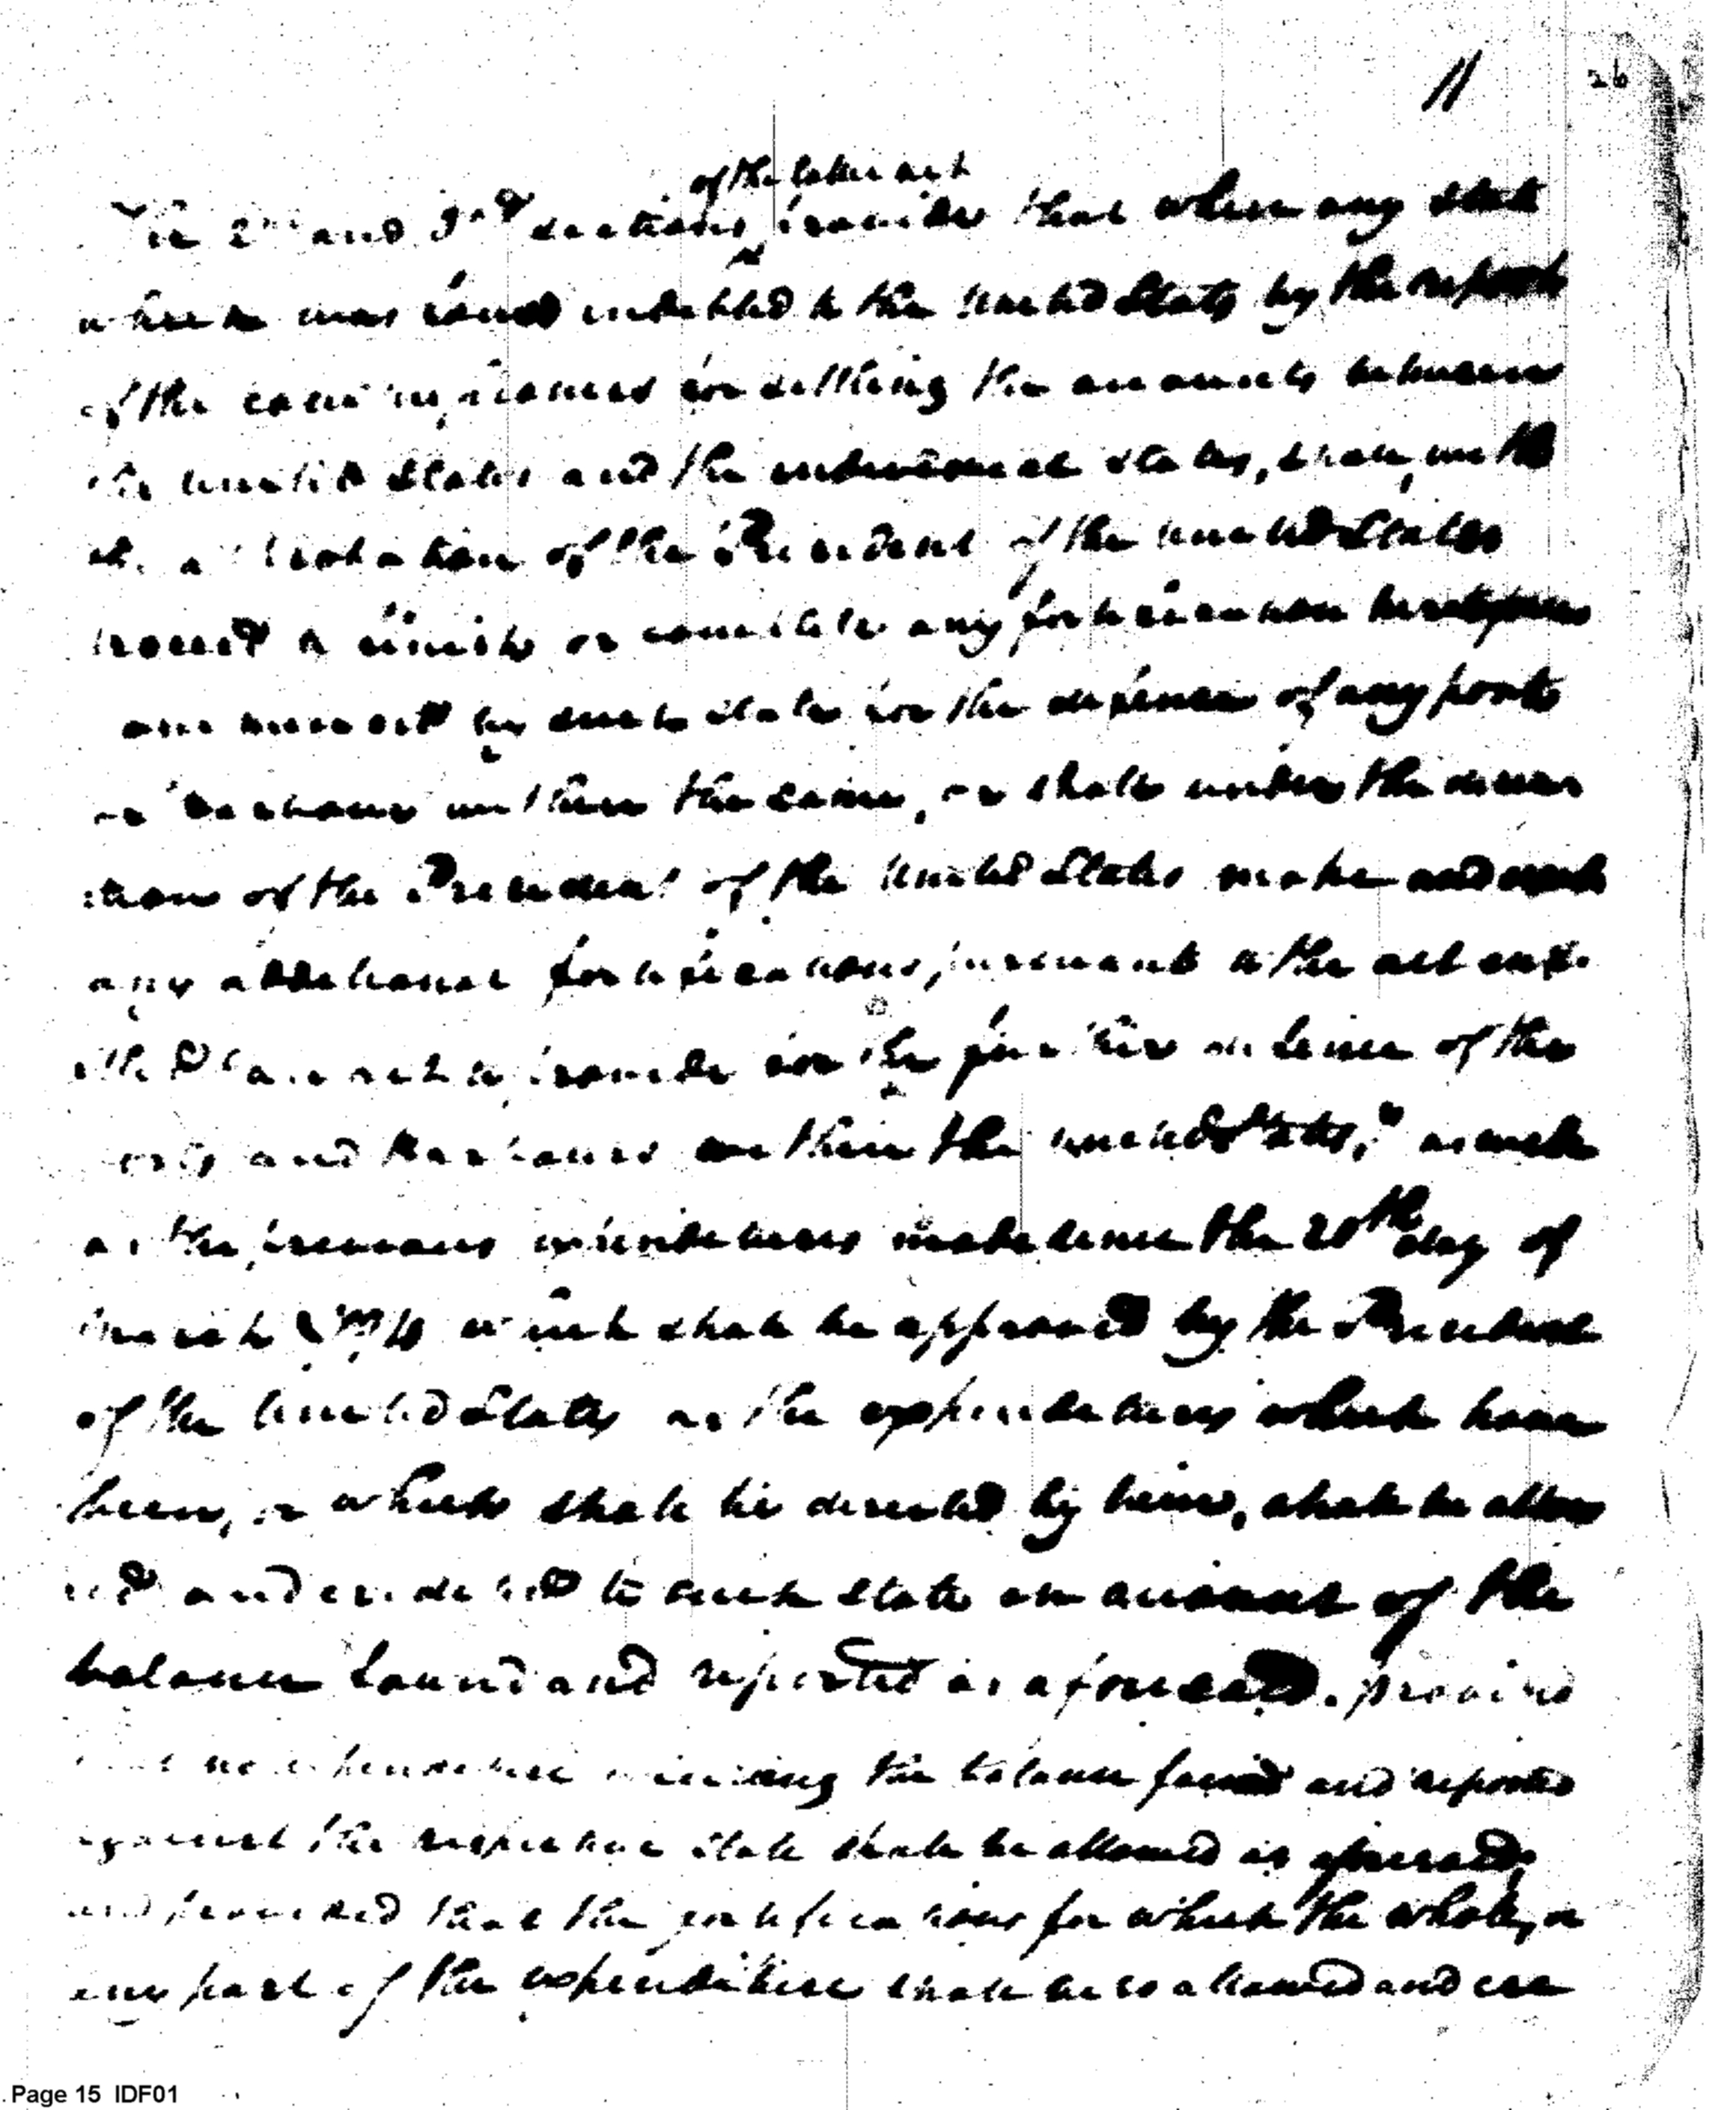 11 26
of the latter act
The 2nd and 3rd sections provide that when any state
which was found indebted to the United States by the report
of the commissioners for settling the accounts between
the United States and the individual states, shall, with
the approbation of the President of the United States
proceed to finish or complete any fortification heretofore
commenced by such state for the defence of any ports
or harbours within the same, or shall under the direc
tion of the President of the United States make and erect
any additional fortifications, pursuant to the act enti
tled "an act to provide for the further defence of the
ports and harbours within the United States," as well
as the previous expenditures made since the 20th day of
March 1794 which shall be approved by the President
of the United States as the expenditures which have
been, or which shall be directed by him, shall be allow
ed and credited to such state on account of the
balance found and reported as aforesaid. provided
that no expenditure exceeding the balance found and reported
against the respective state shall be allowed as aforesaid,
and provided that the fortifications for which the whole, or
any part of the expenditure shall be so allowed and cre
Page 15 IDF01